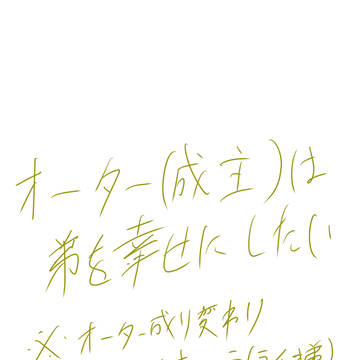 オーター(成主)は
弟を幸せにしたい
※・オーター成り変わり